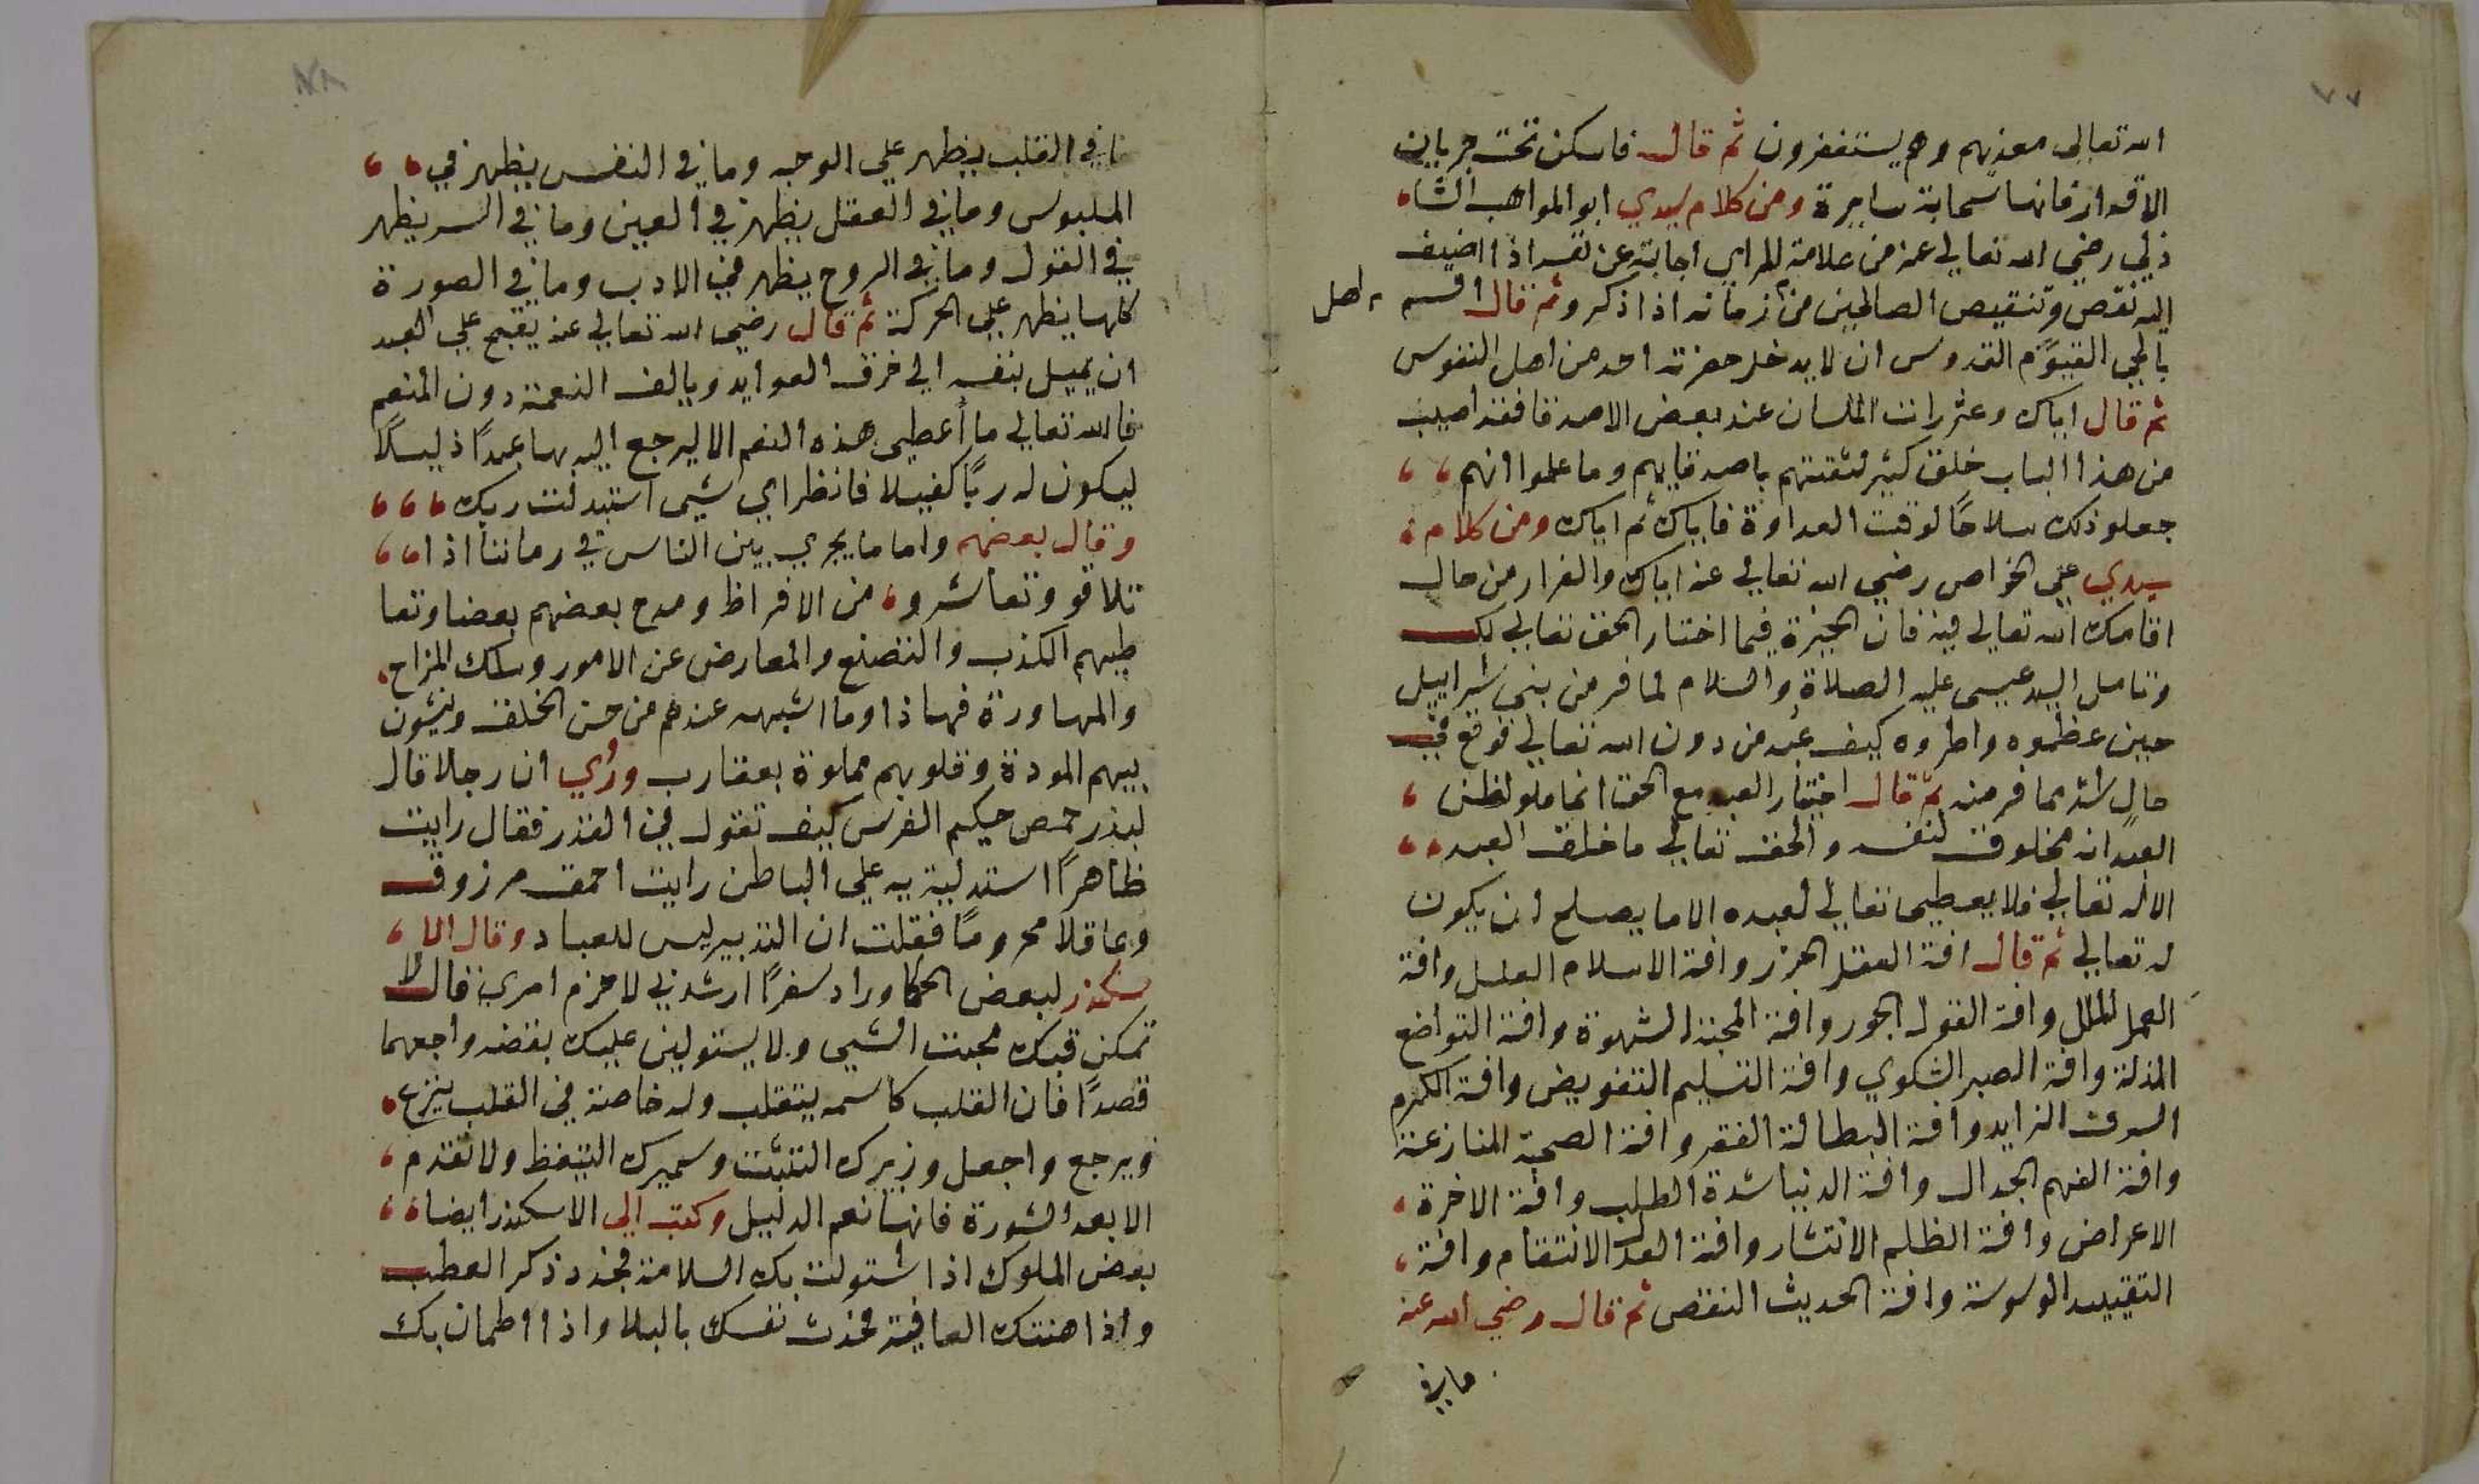 ٧٧
الله تعالى معذبهم وهم يستغفرون ثم قال فاسكن تحت جريان
الاقدار فانها سحابة سايرة ومن كلام سيدي ابو المواهب الشا
ذلي رضي الله تعالي عنه من علامة المراي اجابته عن نفسه اذا اضيف
اليه نقص وتنقيص الصالحين من اهل زمانه اذا ذكر وثم قال اقسم
بالحي القيوم القدوس ان لا يدخل حضرته احد من اهل النفوس
ثم قال اياك وعثرات اللسان عند بعض الاصدقا فقد اصيب
من هذا الباب خلق كثير لثقتهم باصدقايهم وما علموا انهم
جعلو ذلك سلاحًا لوقت العداوة فاياك ثم اياك ومن كلام
سيدي علي الخواص رضي الله تعالي عنه اياك والفرار من حال
اقامك الله تعالي فيه فان الخيرة فيما اختار الحق تعالي لك
وتامل السيد عيسى عليه الصلاة والسلام لما فر من بني اسراييل
حين عظموه واطروه كيف عُبد من دون الله تعالي فوقع في
حال اشد مما فر منه ثم قال اختيار العبد مع الحق انما هو لظن
العبد انه مخلوق لنفسه والحق تعالي ما خلق العبد
الا له تعالي فلا يعطي تعالي لعبده الا ما يصلح ان يكون
له تعالي ثم قال افة العقل الحذر وافة الاسلام العلل وافة
العمل الملل وافة القول الجور وافة المحبة الشهوة وافة التواضع
المذلة وافة الصبر الشكوي وافة التسليم التفويض وافة الكرم
السرف الزايد وافة البطالة الفقر وافة الصحبة المنازعة
وافة الفهم الجدال وافة الدنيا شدة الطلب وافة الاخرة
الاعراض وافة الظلم الانتشار وافة العدل الانتقام وافة
التقييد الوسوسة وافة الحديث النقص ثم قال رضي الله عنه
مافي
٧٨
مافي القلب يظهر علي الوجه وما في النفس يظهر في
الملبوس وما في العقل يظهر في العين وما في السر يظهر
في القول وما في الروح يظهر في الادب وما في الصورة
كلها يظهر علي الحركة ثم قال رضي الله تعالي عنه يقبح علي العبد
ان يميل بنفسه الي خرق العوايد ويالف النعمة دون المنعم
فالله تعالي ما أعطي هذه النعم الا ليرجع اليه بها عبدًا ذليلًا
ليكون له ربًا كفيلا فانظر اي شيي استبدلت ربك
وقال بعضهم واما ما يجري بين الناس في زماننا اذا
تلاقو وتعاشرو من الافراط ومدح بعضهم بعضا وتعا
طيهم الكذب والتصنع والمعارض عن الامور وسلك المزاح
والمهاورة فهاذا وما اشبهه عندهم من حسن الخلف وينشون
بيهم المودة وقلوبهم مملوة بعقارب ورُي ان رجلا قال
لبذرحمص حكيم الفرس كيف تقول في القدر فقال رايت
ظاهرًا استدلية به علي الباطن رايت احمق مرزوق
وعاقلا محرومًا فقلت ان التدبير ليس للعباد وقال الا
سكندر لبعض الحكما وراد سفرًا ارشدني لاحزم امري فقال لا
تمكن قبك محبت الشي ولا يستولين عليك بغضه واجعهما
قصدًا فان القلب كاسمه يتقلب وله خاصة في القلب ينزع
ويرجع واجعل وزيرك التثبت وسميرك التيقظ ولا تقدم
الا بعد الشورة فانها نعم الدليل وكتب الي الاسكندر ايضا
بعض الملوك اذا استولت بك السلامة فجدد ذكر العطب
واذا هنتك العافية فحدث نفسك بالبلا واذا اطمان بك